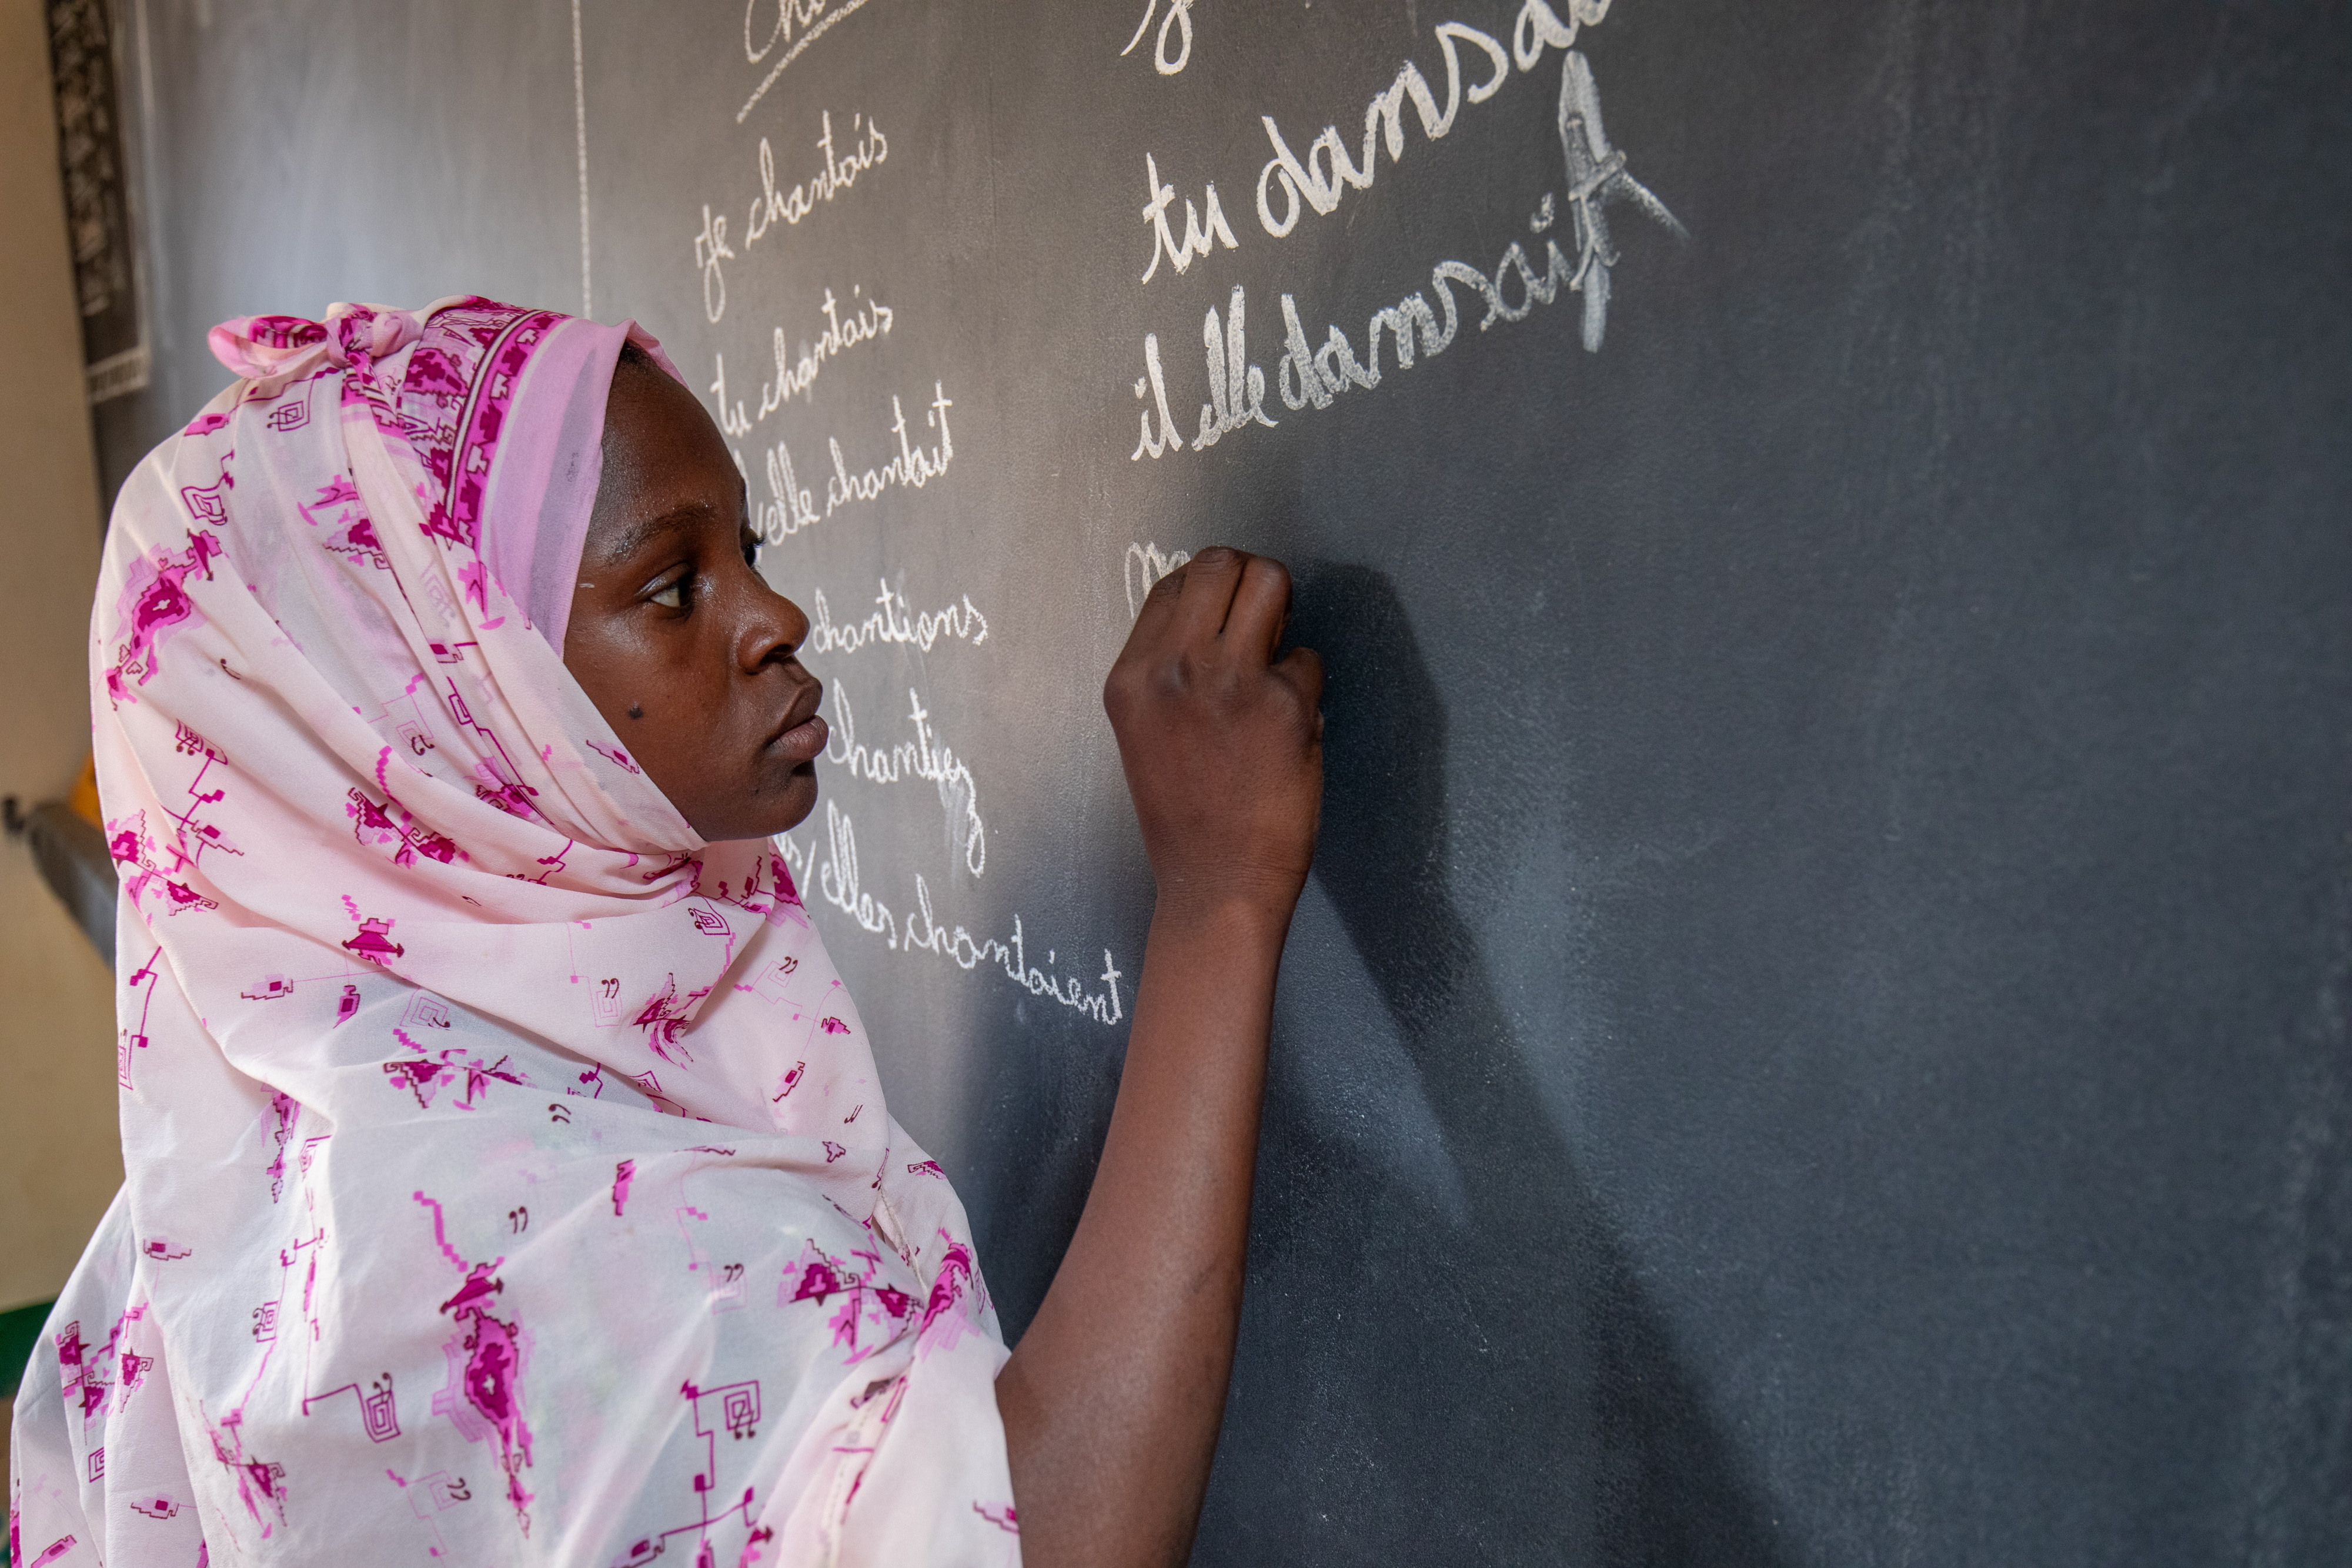 je chantais
tu chantais
elle chantait
chantions
chantiez
/elles chantaient
tu
il elle dansait